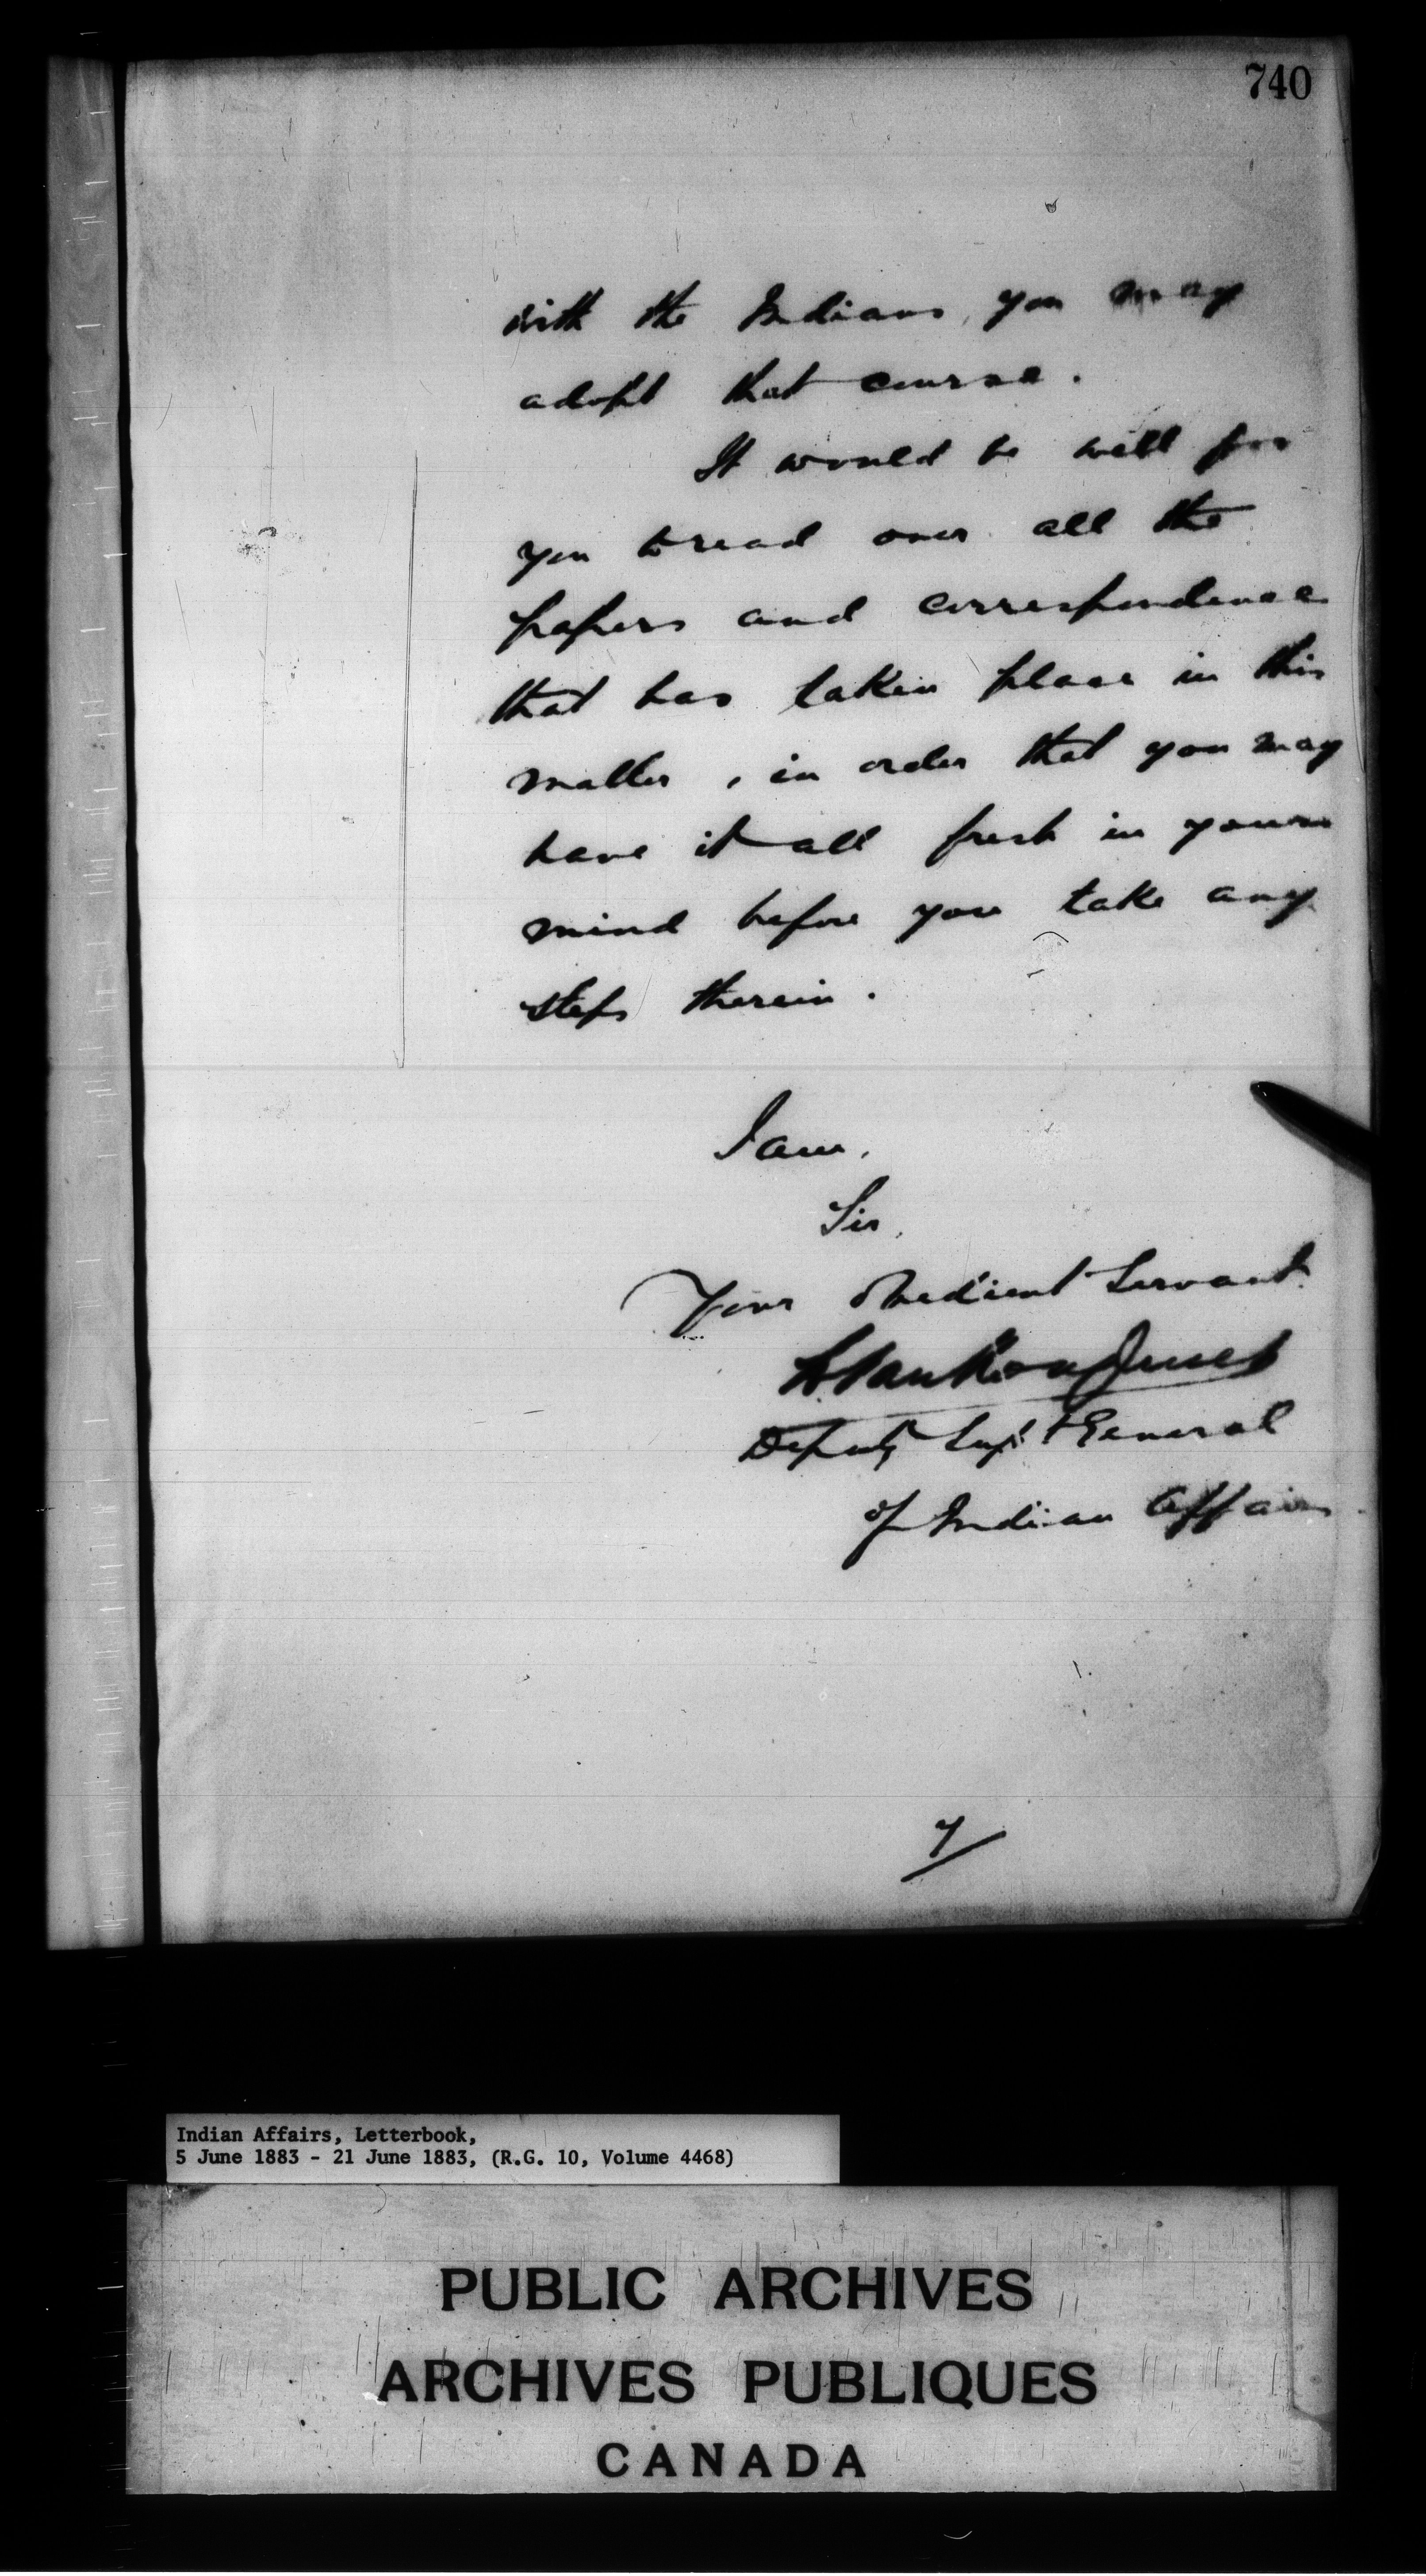 740
with the Indians, you may
adopt that course.
It would be well for
you to read over all the
papers and correspondence
that has taken place in this
matter, in order that you may
have it all fresh in your
mind before you take any
steps therein.
I am,
Sir,
Your obedient Servant.
L. Vankoughnet
Deputy Supt General
of Indian Affairs
Indian Affairs, Letterbook,
5 June 1883 - 21 June 1883, (R.G. 10, Volume 4468)
PUBLIC ARCHIVES
ARCHIVES PUBLIQUES
CANADA